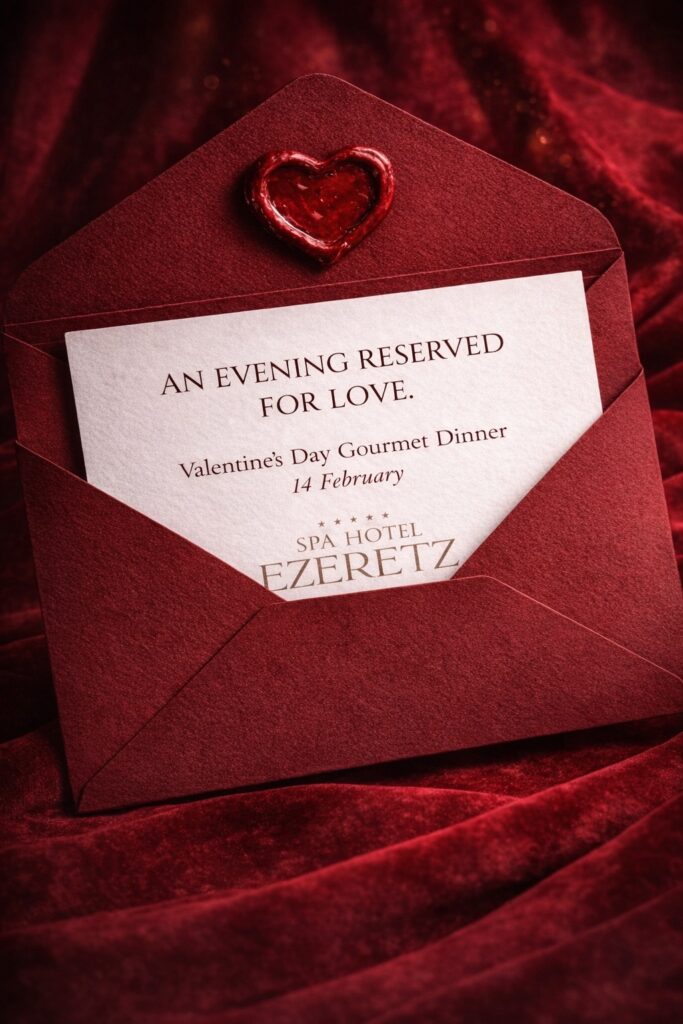 AN EVENING RESERVED
FOR LOVE.
Valentine's Day Gourmet Dinner
14 February
SPA HOTEL
EZERETZ